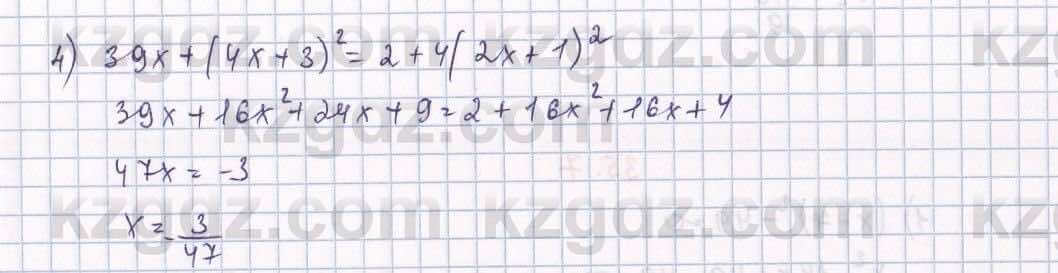 4) 39x + (4x + 3)² = 2 + 4(2x + 1)²
39x + 16x² + 24x + 9 = 2 + 16x² + 16x + 4
47x = -3
x = -3/47
kzgdz.com kzgdz.com
kzgdz.com
kzgdz.com kzgdz.com